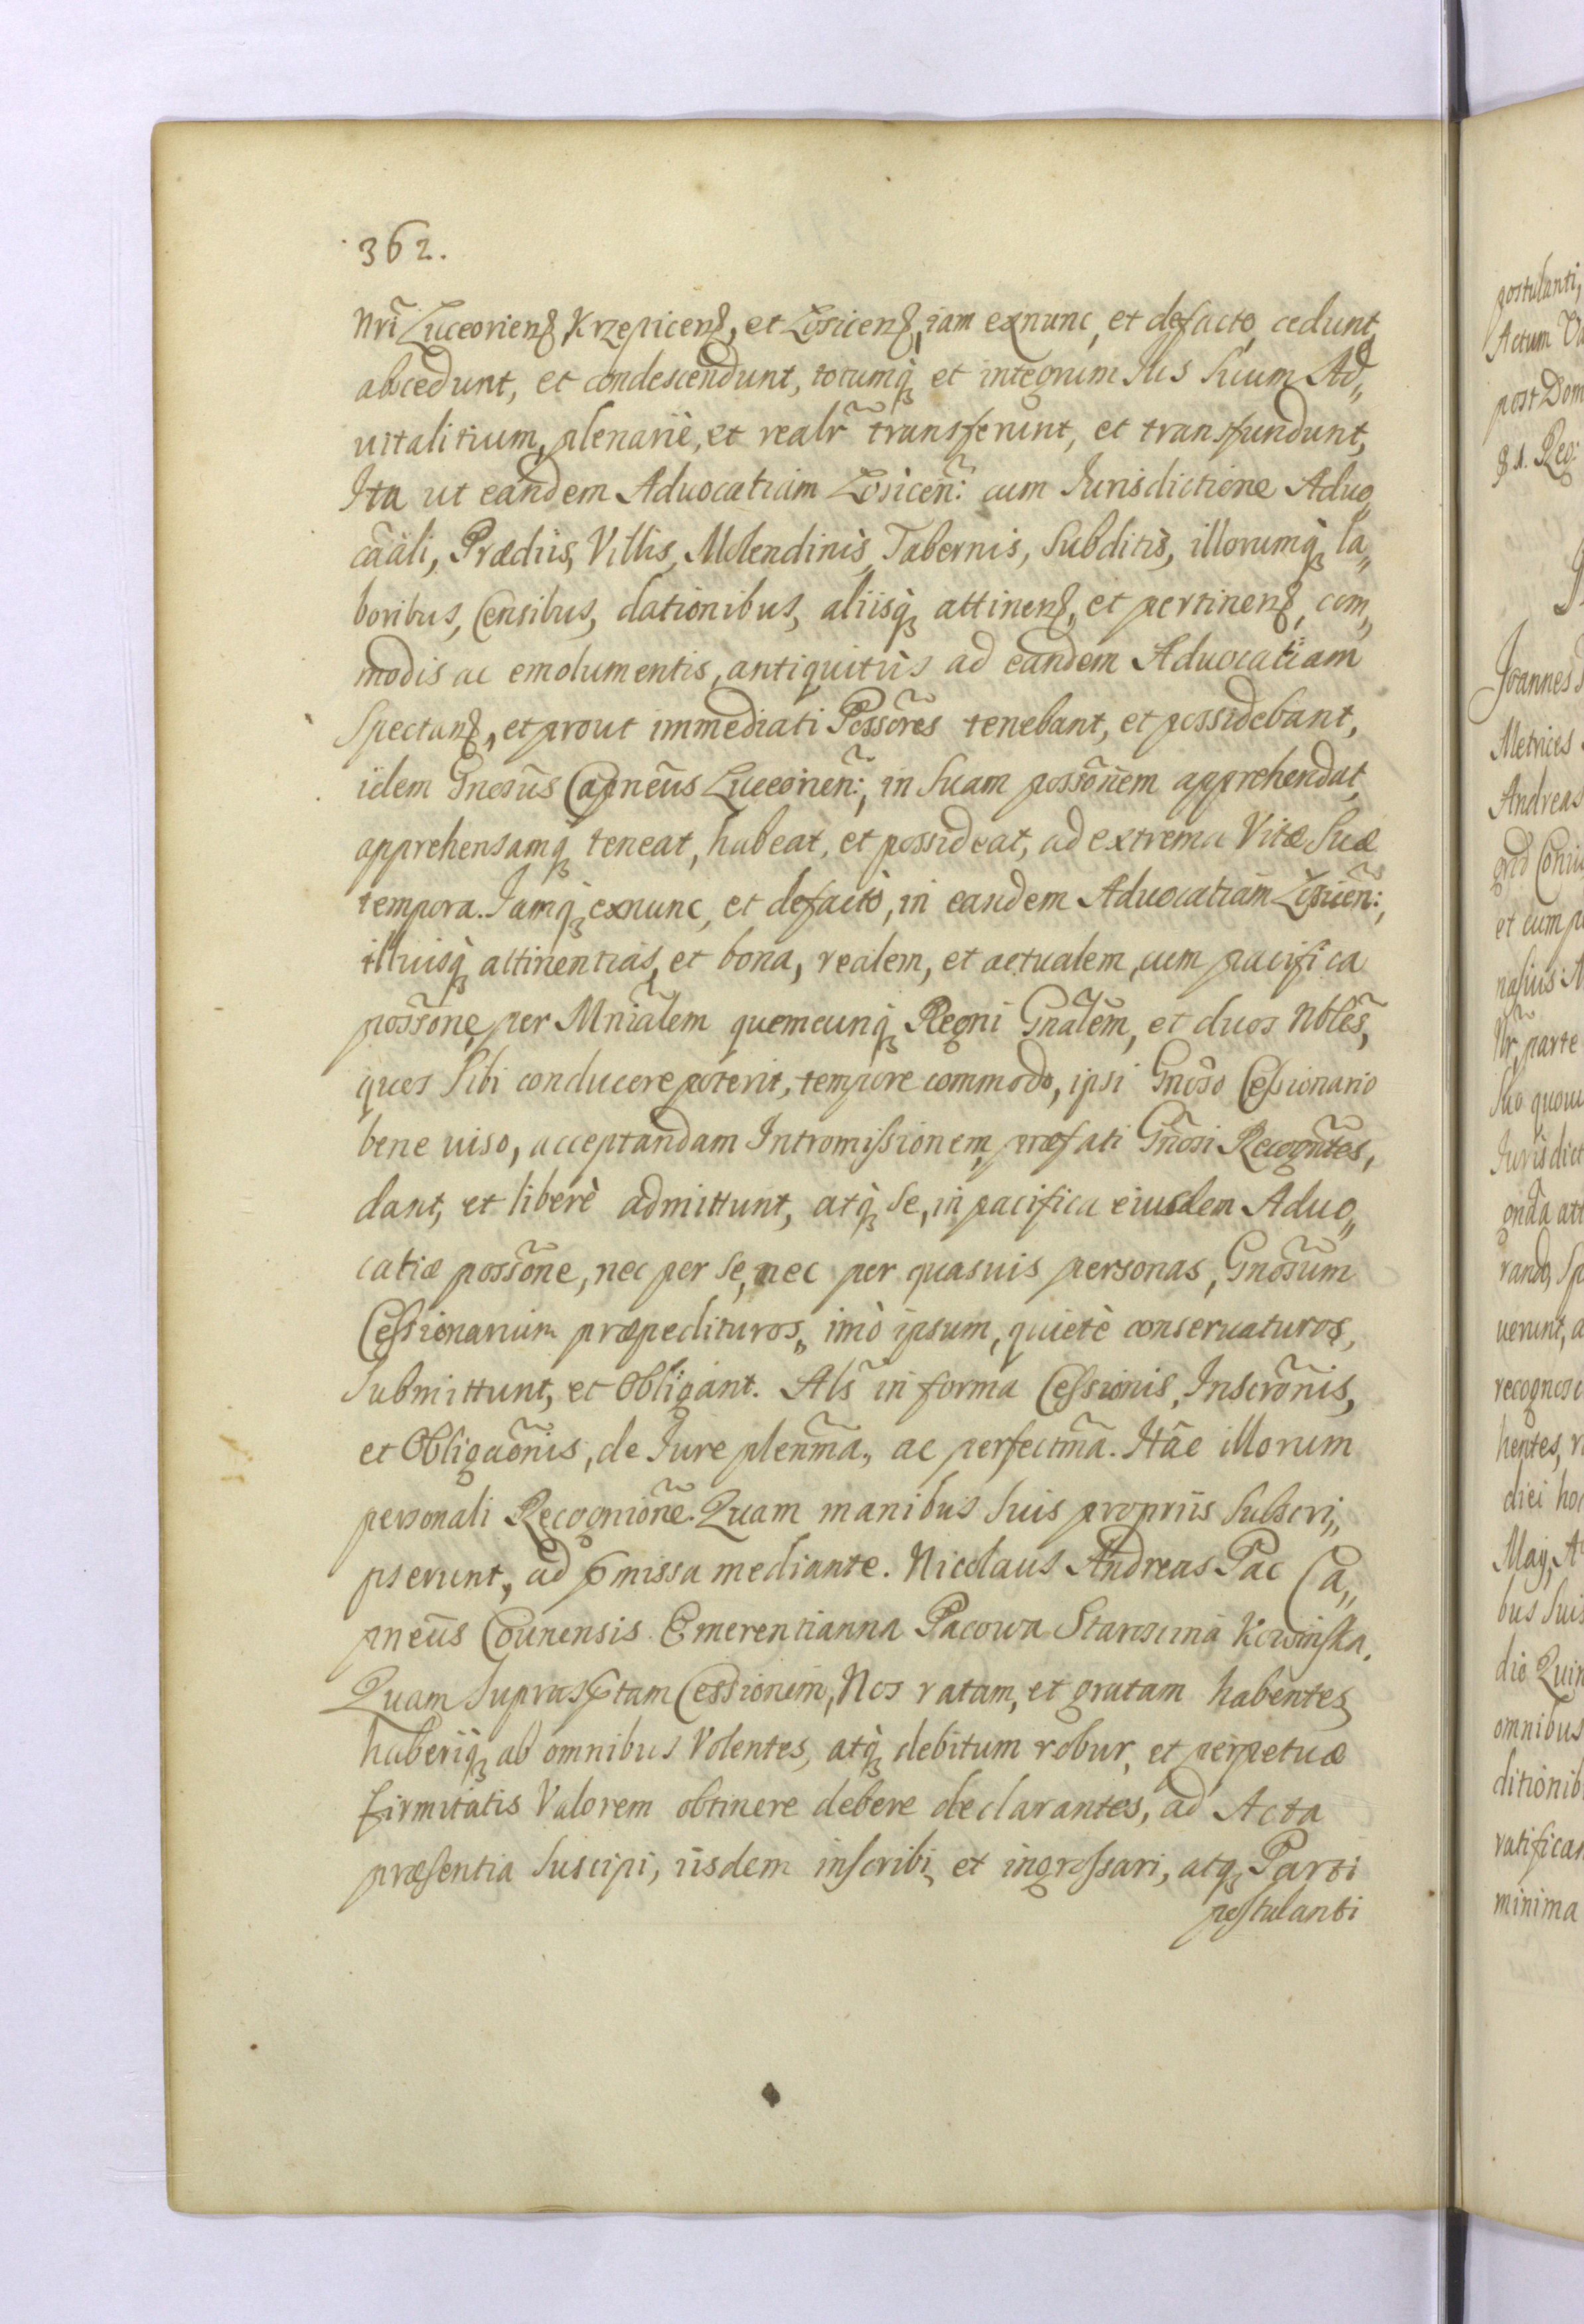 362.
Nrĩ Luceorienꝭ, Krzepicenꝭ, et Łosicenꝭ, iam exnunc, et defacto, cedunt
abscedunt, et condescendunt, totumq̀ et integrum Ius Suum Ad„
uitalitium, plenariè, et realr̃ transferunt, et transfundunt,
Ita ut eandem Aduocatiam Łosicen̄: cum Iurisdictione Aduo„
cāāli, Prædiis, Villis, Molendinis, Tabernis, Subditis, illorumq̀ la„
boribus, Censibus, dationibus, aliisq̀ attinenꝭ, et pertinenꝭ, com„
modis ac emolumentis, antiquitùs ad eandem Aduocatiam
Spectanꝭ, et prout immediati Possõres tenebant, et possidebant,
iidem Gnosũs Capneũs Luceorien̄:, in Suam possõnem apprehendat,
apprehensamq̀ teneat, habeat, et possideat, ad extrema Vitæ Suæ
tempora. Iamq̀ exnunc, et defactò, in eandem Aduocatiam Łosicen̄:,
illiusq̀ attinentias, et bona, realem, et actualem, cum pacifica
possõne, per Mnrãlem quemcunq̀ Regni Gnãlem, et duos Nbles̃,
quos Sibi conducere poterit, tempore commodo, ipsi Gnosõ Cessionario
bene uiso, acceptandam Intromissionem, præfati Gnõsi Recognt̃es,
dant, et liberè admittunt, atq̀ Se, in pacifica eiusdem Aduo„
catiæ possõne, nec per se, nec per quasuis personas, Gnosũm
Cessionarium præpedituros„ imò ipsum, quietè conseruaturos,
Submittunt, et Obligant. Als̃ in forma Cessionis, Inscrõnis,
et Obligaõnis, de Iure plenm̃a„ ac perfectm̃a. Hãc illorum
personali Recogniõne. Quam manibus Suis propriis Subscri„
pserunt, ad p̱missa mediante. Nicolaus Andreas Pac Ca„
pneũs Counensis. Emerentianna Pacowa Starosciná Kowinska.
Quam Suprasp̱tam Cessionem, Nos ratam, et gratam habentes
haberiq̀ ab omnibus Volentes, atq̀ debitum robur, et perpetuæ
firmitatis Valorem obtinere debere declarantes, ad Acta
præsentia Suscipi, iisdem inscribi, et ingrossari, atq̀ Parti
postulanti
postulanti,
Actum
post Dom
Joannes
Metrices
Andreas
et cum
parte
Iurisdict
uerunt, a
recognosc
hentes,
diei
May,
bus Suis
die Quin
omnibus
ditionib
ratifican
minima